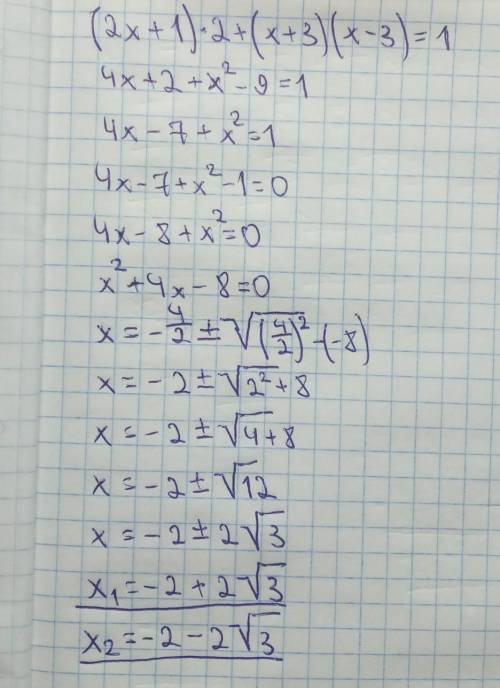 (2x+1)·2+(x+3)(x-3)=1
4x+2+x²-9=1
4x-7+x²=1
4x-7+x²-1=0
4x-8+x²=0
x²+4x-8=0
x=-4/2±√(4/2)²-(-8)
x=-2±√2²+8
x=-2±√4+8
x=-2±√12
x=-2±2√3
x₁=-2+2√3
x₂=-2-2√3